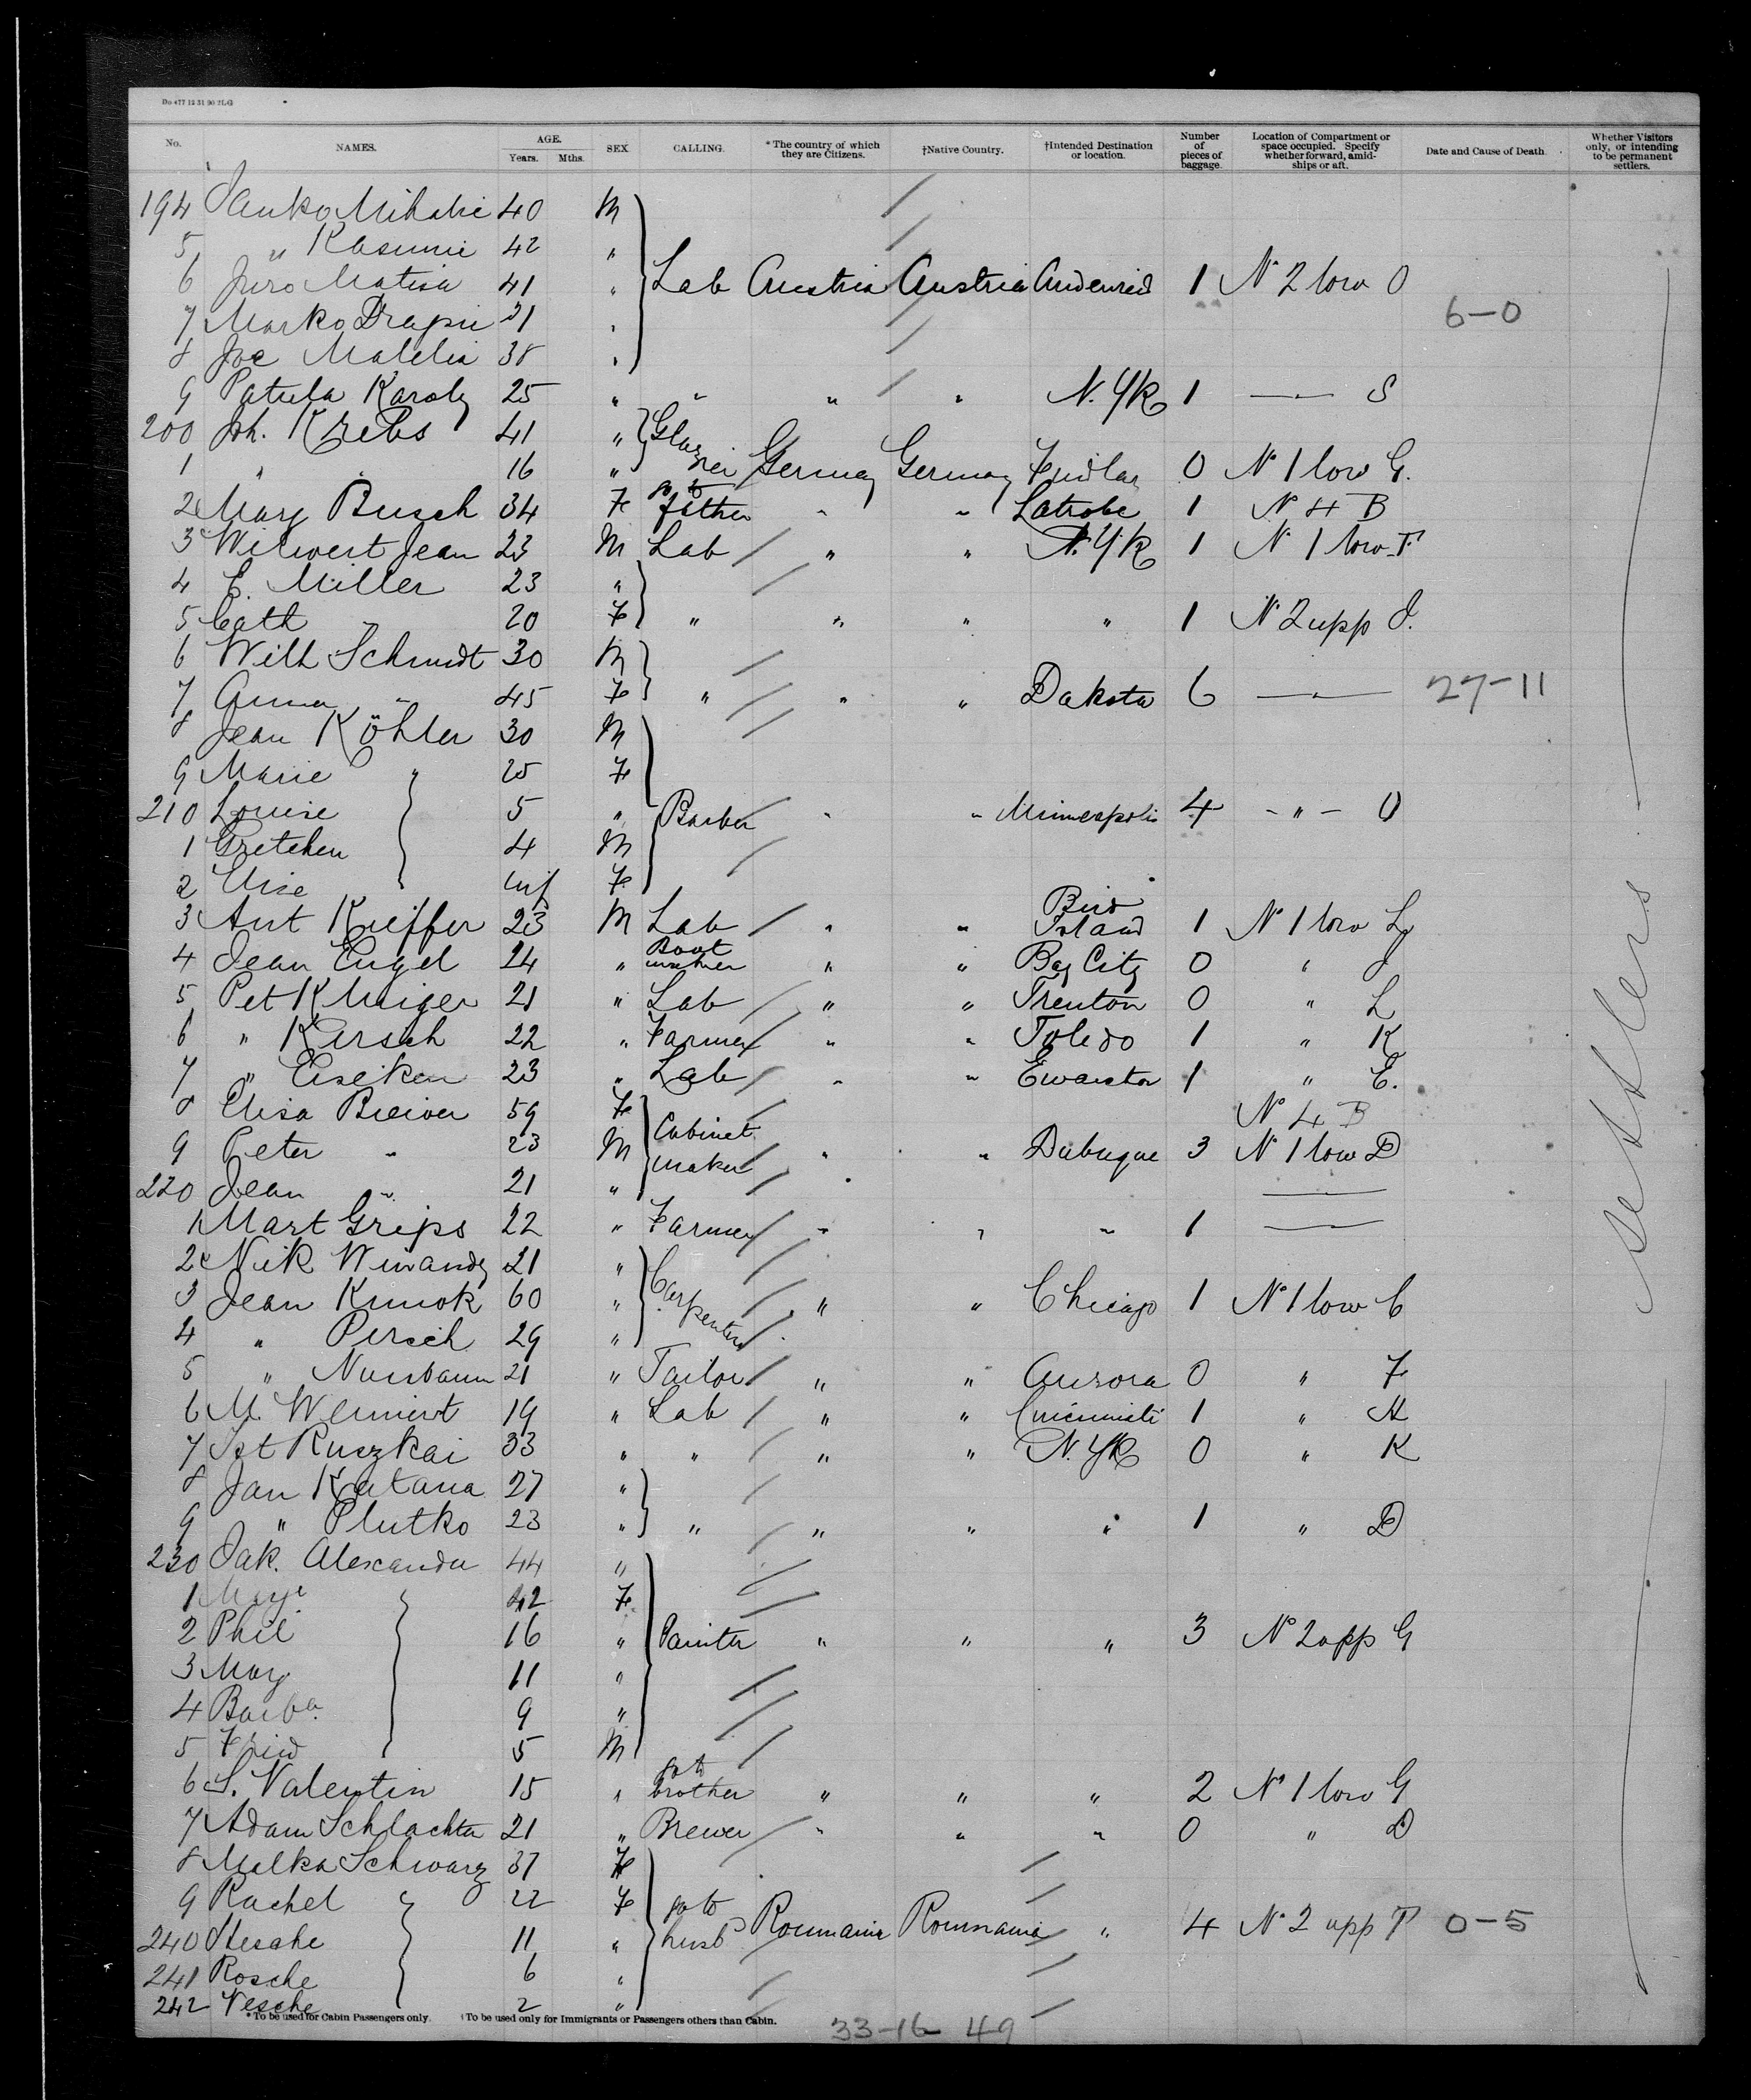 Do 477 12 31 90 2LG
No. NAMES. AGE. Years. Mths. SEX CALLING. *The country of which they are Citizens. †Native Country. †Intended Destination or location. Number of pieces of baggage. Location of Compartment or space occupied. Specify whether forward, amidships or aft. Date and Cause of Death. Whether Visitors only, or intending to be permanent settlers.
194 Janko Mihalic 40 M
5 " 42 "
6 Juro Matisa 41 " Lab Austria Austria Audenried 1 No 2 low O
7 Marko 21 " 6-0
8 Joe 38 "
9 Patula Karoly 25 " " " " N. Yk 1 —"— S
200 Joh. Krebs 41 " Glazier
1 " " 16 " Germany Germany 0 No 1 low G.
2 Mary Busch 34 F go to father " " Latrobe 1 No 4 B
3 Jean 23 M Lab " " N. Yk 1 No 1 low F
4 E. Miller 23 "
5 Cath " 20 F " " " " 1 No 2 upp J.
6 Wilh Schmidt 30 M
7 Anna " 45 F " " " Dakota 6 —"— 27-11
8 Jean Köhler 30 M
9 Marie " 25 F
210 Louise 5 " Barber " " Minneapolis 4 -"- O
1 Gretchen 4 M
2 Elise inf F
3 Ant Kieffer 23 M Lab " " Bird Island 1 No 1 low L
4 Jean Engel 24 " Boot " " Bay City 0 " J
5 Pet 21 " Lab " " Trenton 0 " L
6 " Kirsch 22 " Farmer " " Toledo 1 " K
7 " 23 " Lab " " Evanston 1 " E.
8 Elisa 59 F No 4 B
9 Peter " 23 M Cabinet maker " " Dubuque 3 No 1 low D
220 Jean " 21 " ——
1 Mart Grips 22 " Farmer " " " 1 ——
2 Nik Winandy 21 "
3 Jean 60 " Carpenter " " Chicago 1 No 1 low C
4 " Persch 29 "
5 " Nussbaum 21 " Tailor " " Aurora 0 " F
6 M. 19 " Lab " " Cincinnati 1 " H
7 Ist Ruszkai 33 " " " " N. Yk 0 " K
8 Jan Katana 27 "
9 " Plutko 23 " " " " " 1 " D
230 Jak. Alexander 44 "
1 42 F
2 Phil 16 " Painter " " " 3 No 2 upp G
3 Mary 11 "
4 Barba 9 "
5 Fried 5 M
6 S. Valentin 15 " go to brother " " " 2 No 1 low G
7 Adam Schlachter 21 " Brewer " " " 0 " D
8 Malka Schwarz 37 F
9 Rachel " 22 F go to
240 Hesche 11 " husb Roumania Roumania " 4 No 2 upp P 0-5
241 Rosche 6 "
242 Nesche 2 "
settlers
*To be used for Cabin Passengers only. †To be used only for Immigrants or Passengers others than Cabin.
33-16 49